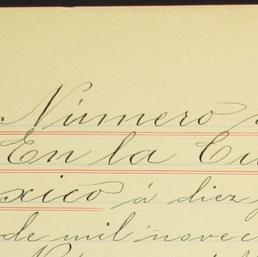 Número
En la Ciu
xico á diez y
de mil novec